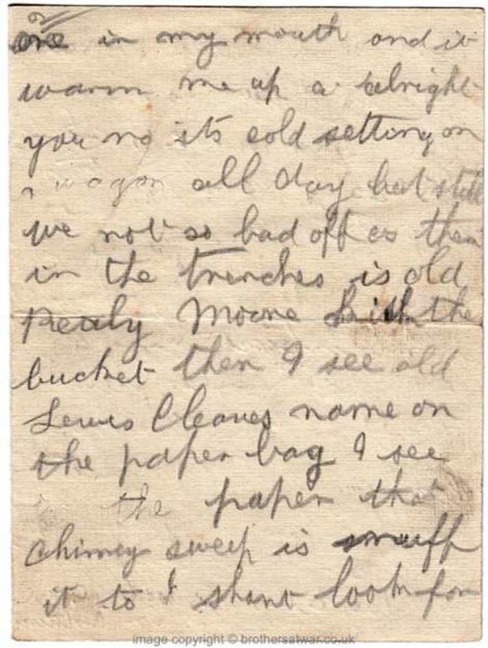 one in my mouth and it
warm me up a alright
you no its cold setting on
a wagon all day but still
we not so bad off as them
in the trenches is old
Moore the
bucket then I see old
Lewis Cleaves name on
the paper bag I see
the paper that
Chimey sweep is snuff
it to I shant look for
image copyright © brothersatwar.co.uk